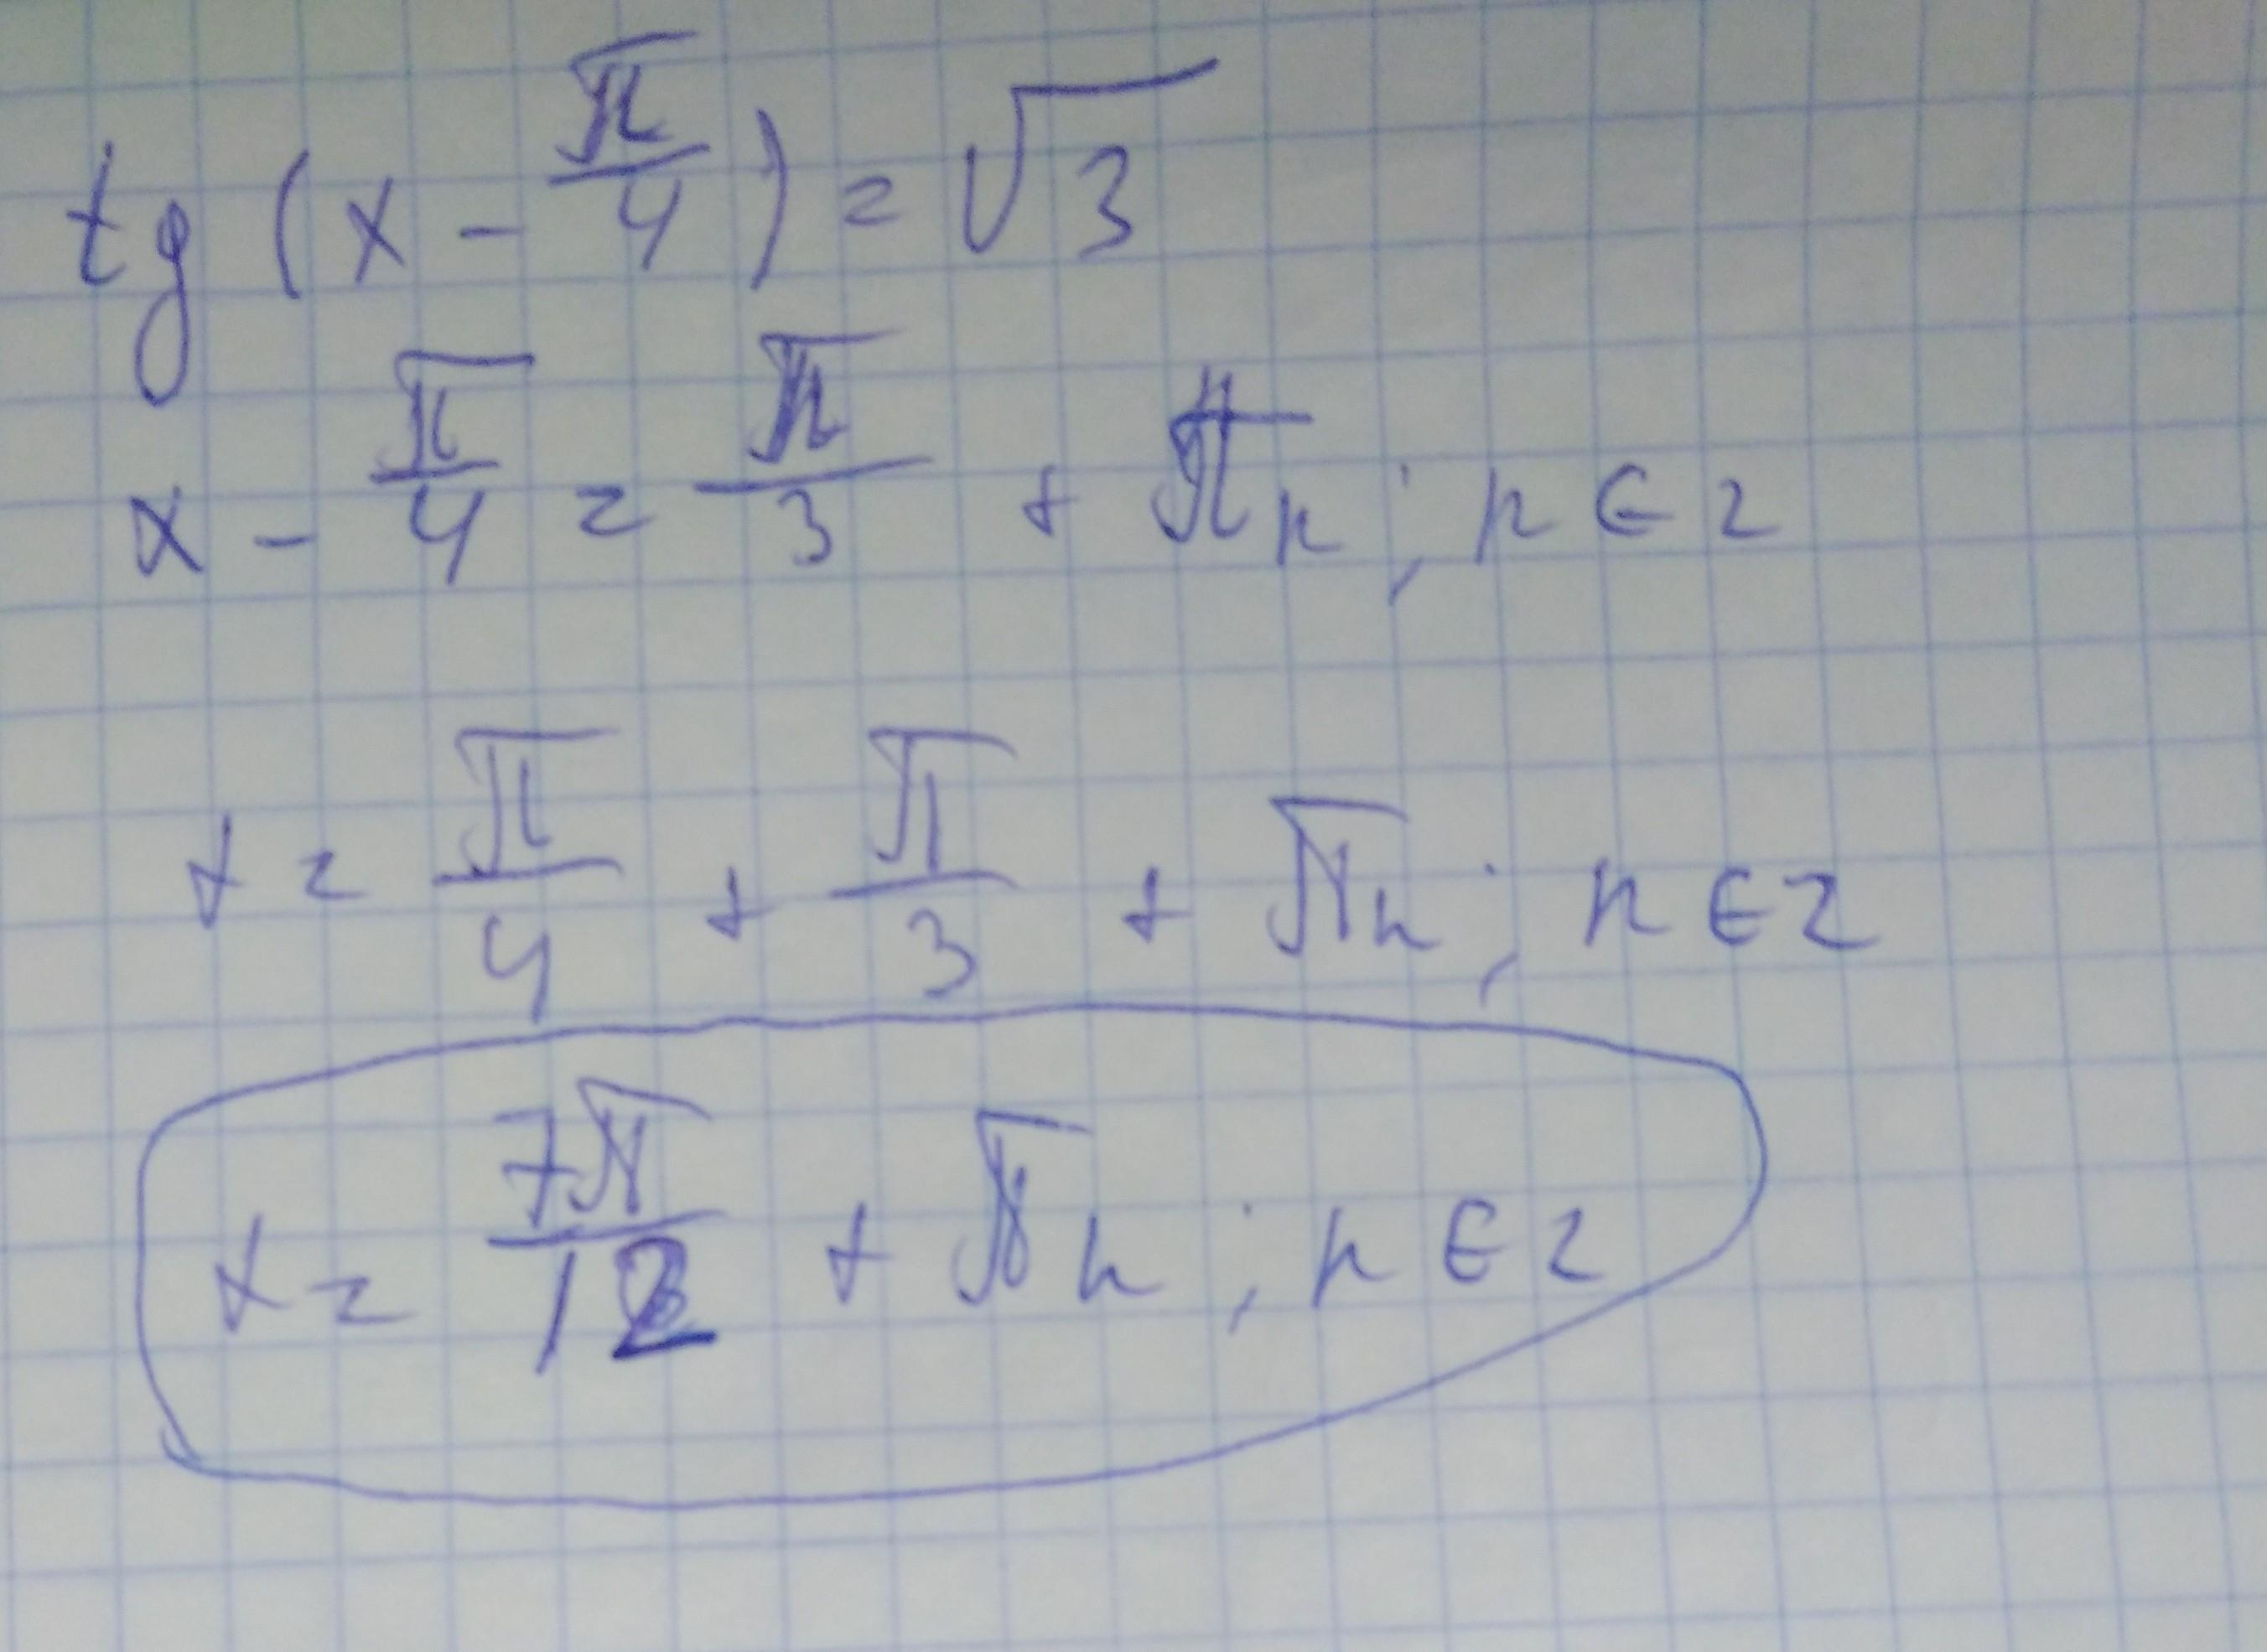 tg (x - π/4) = √3
x - π/4 = π/3 + πn; n ∈ z
x = π/4 + π/3 + πn; n ∈ z
x = 7π/12 + πn; n ∈ z